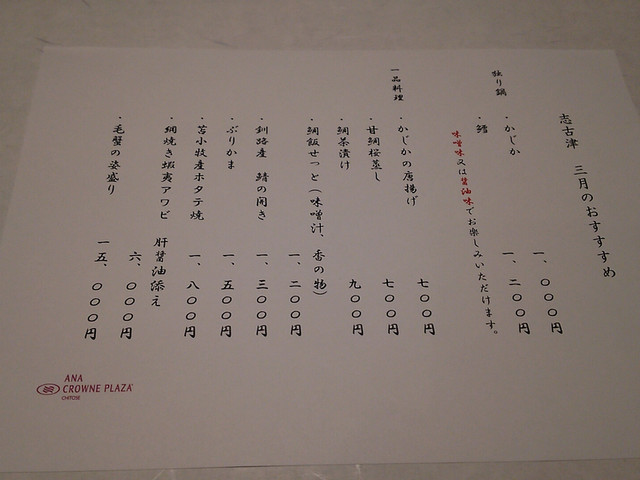 志古津 三月のおすすめ
独り鍋
・かじか 一、〇〇〇円
・鱈 一、二〇〇円
味噌味又は醤油味でお楽しみいただけます。
一品料理
・かじかの唐揚げ 七〇〇円
・甘鯛桜蒸し 七〇〇円
・鯛茶漬け 九〇〇円
・鯛飯せっと(味噌汁、香の物) 一、二〇〇円
・釧路産 鯖の開き 一、三〇〇円
・ぶりかま 一、五〇〇円
・苫小牧産ホタテ焼 一、八〇〇円
・網焼き蝦夷アワビ 肝醤油添え 六、〇〇〇円
・毛蟹の姿盛り 一五、〇〇〇円
ANA
CROWNE PLAZA
CHITOSE